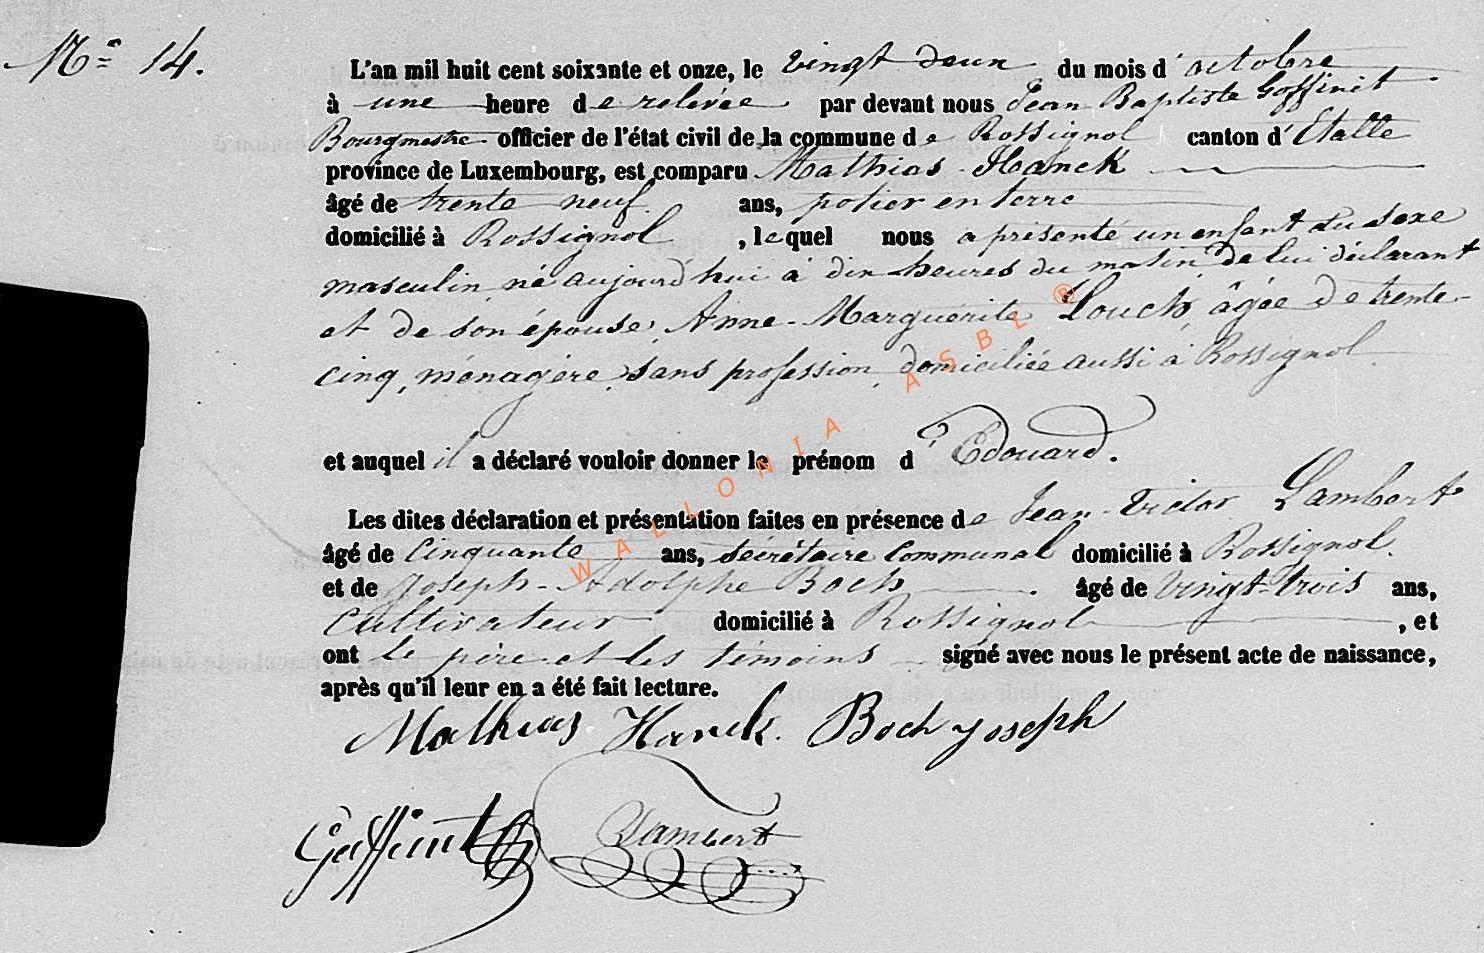 N° 14.
L'an mil huit cent soixante et onze, le vingt deux du mois d'octobre
à une heure de relevée par devant nous Jean Baptiste Goffinet
Bourgmestre officier de l'état civil de la commune de Rossignol canton d'Etalle
province de Luxembourg, est comparu Mathias Hanck
âgé de trente neuf ans, potier en terre
domicilié à Rossignol, lequel nous a présenté un enfant du sexe
masculin, né aujourd'hui à dix heures du matin de lui déclarant
et de son épouse, Anne-Marguérite Louch, âgée de trente-
cinq, ménagère, sans profession, domiciliée aussi à Rossignol
et auquel il a déclaré vouloir donner le prénom d'Edouard.
Les dites déclaration et présentation faites en présence de Jean-Victor Lambert
âgé de cinquante ans, secrétaire communal domicilié à Rossignol.
et de Joseph-Adolphe Boch âgé de vingt-trois ans,
cultivateur domicilié à Rossignol, et
ont le père et les témoins signé avec nous le présent acte de naissance,
après qu'il leur en a été fait lecture.
Mathias Hanck. Boch Joseph
Goffinet Lambert
WALLONIA ASBL ®